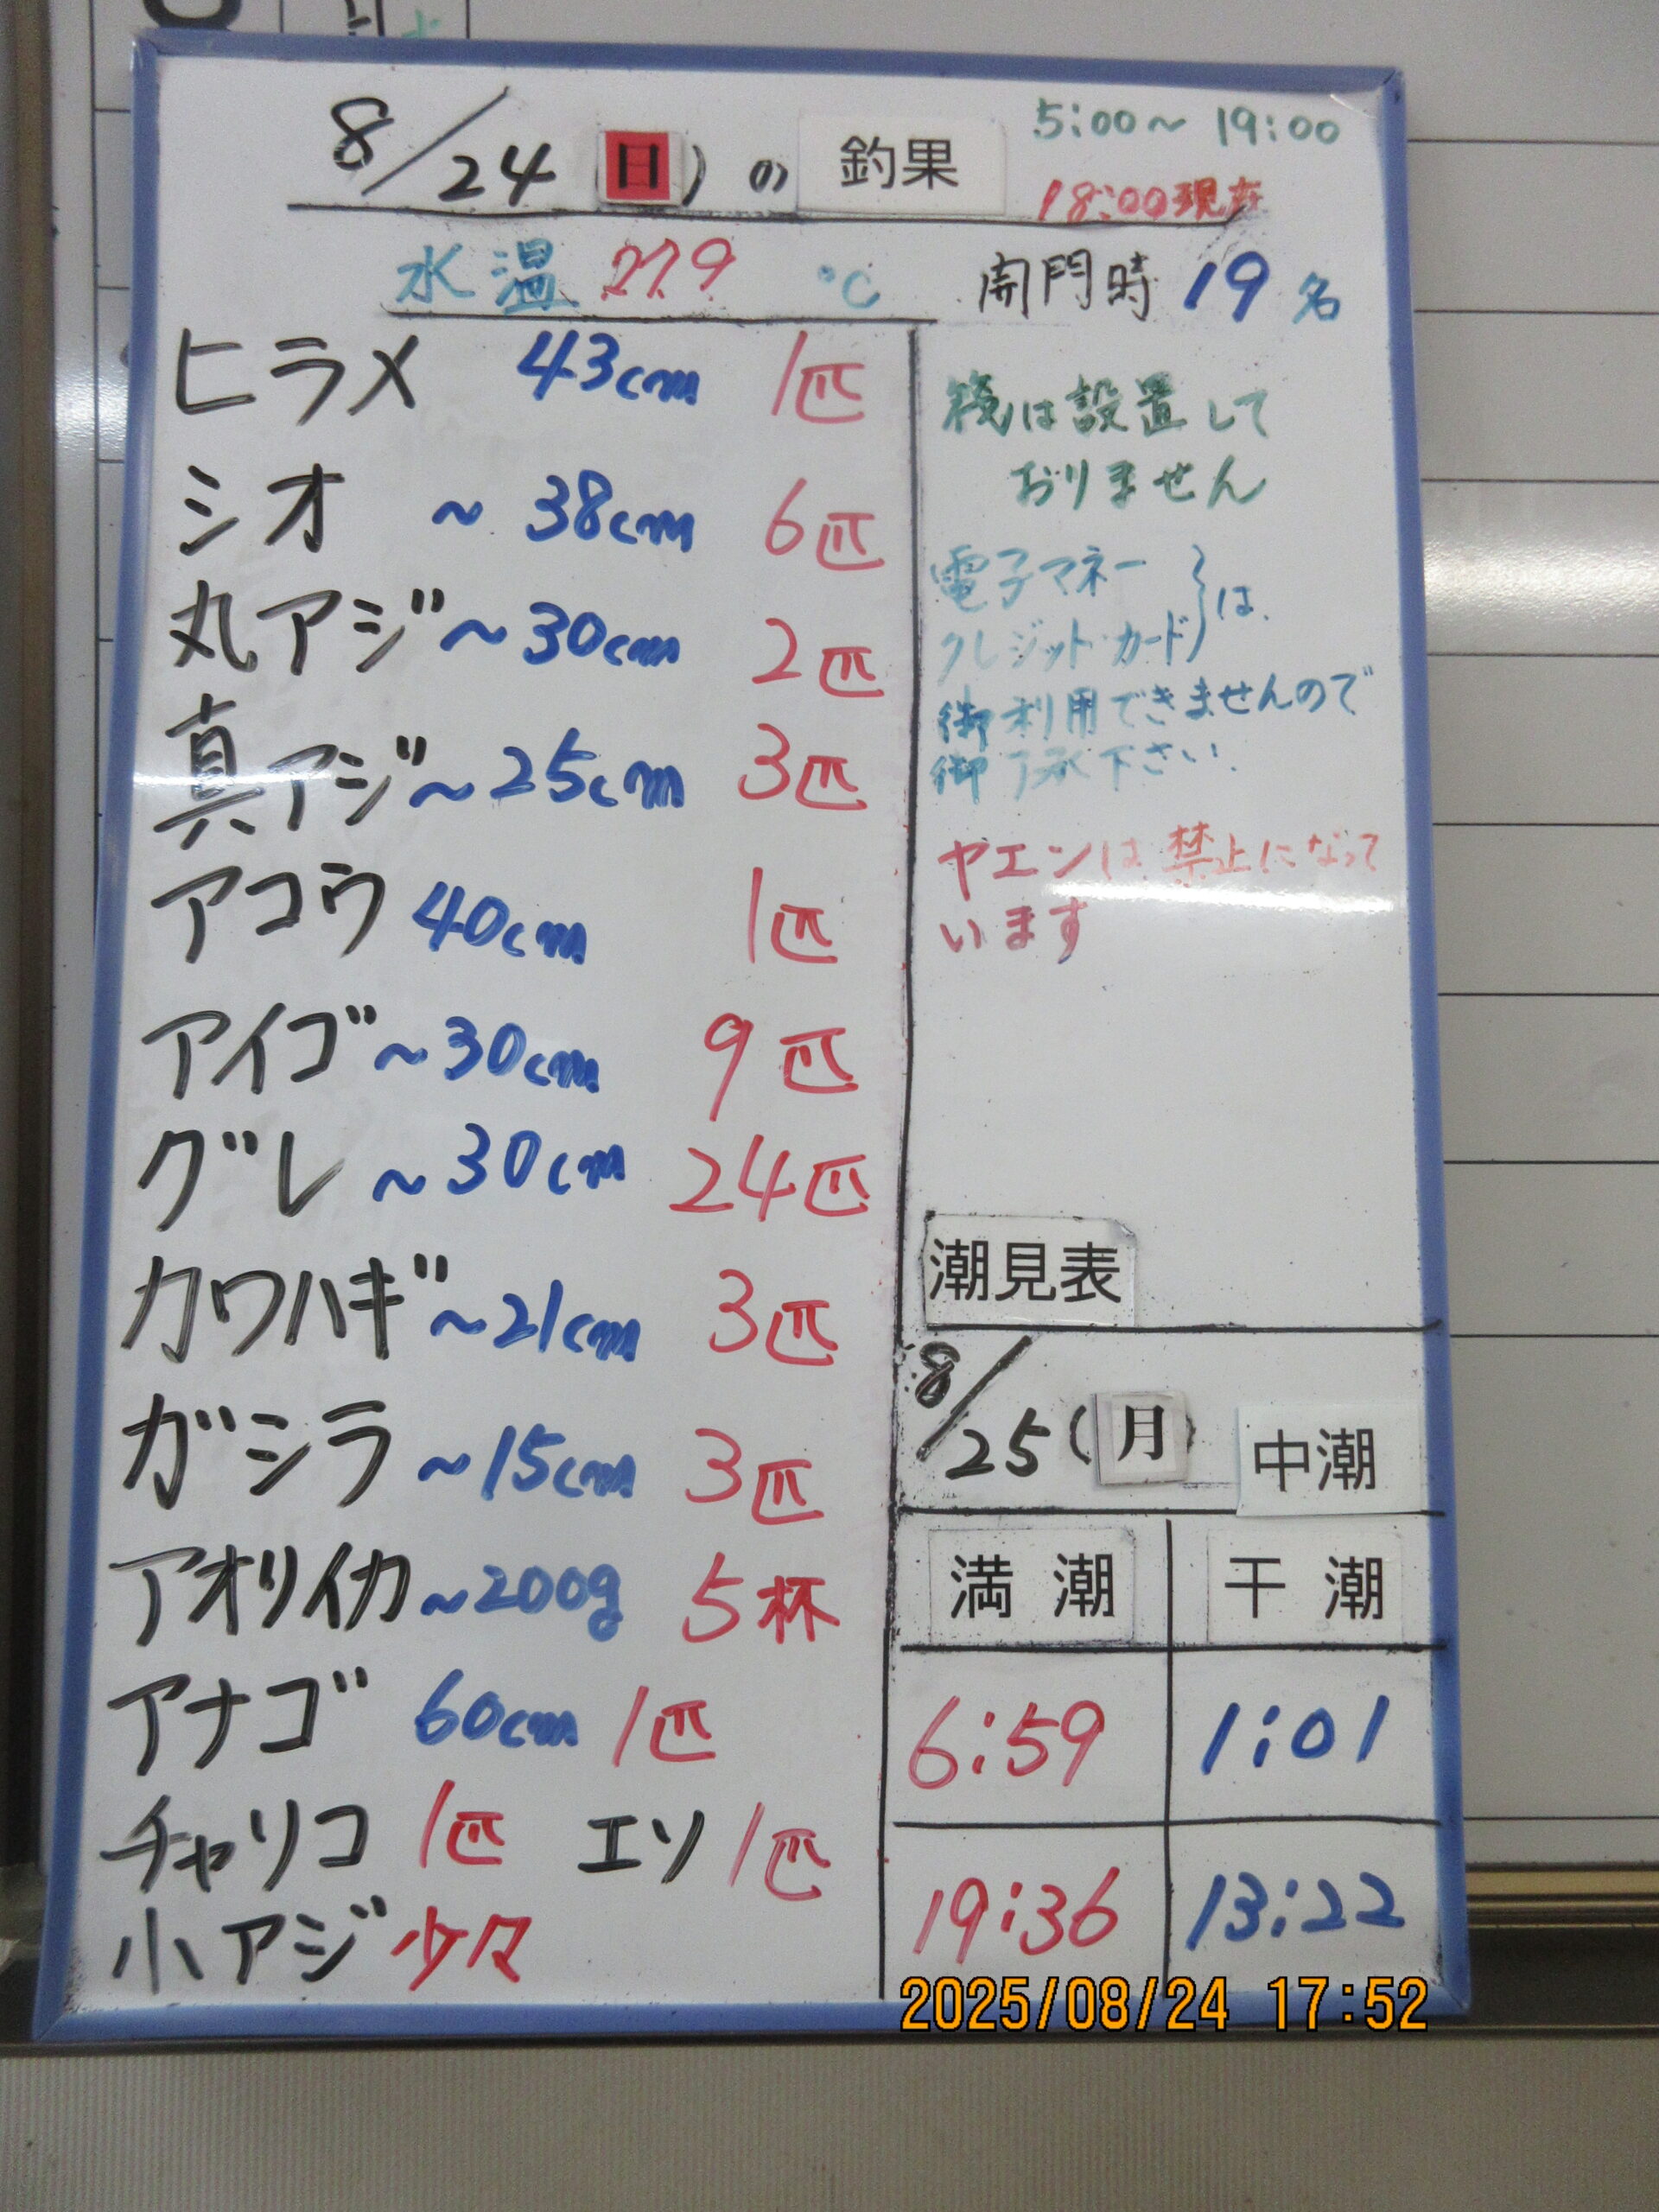 8/24(日)の釣果
5:00～19:00
18:00現在
水温 27.9 ℃
開門時 19名
ヒラメ 43cm 1匹
シオ ～38cm 6匹
丸アジ ～30cm 2匹
真アジ ～25cm 3匹
アコウ 40cm 1匹
アイゴ ～30cm 9匹
グレ ～30cm 24匹
カワハギ ～21cm 3匹
ガシラ ～15cm 3匹
アオリイカ ～200g 5杯
アナゴ 60cm 1匹
チャリコ 1匹 エソ 1匹
小アジ 少々
筏は設置して
おりません
電子マネー
クレジットカード}は
御利用できませんので
御了承下さい.
ヤエンは禁止になって
います
潮見表
8/25(月) 中潮
満潮 干潮
6:59 1:01
19:36 13:22
2025/08/24 17:52